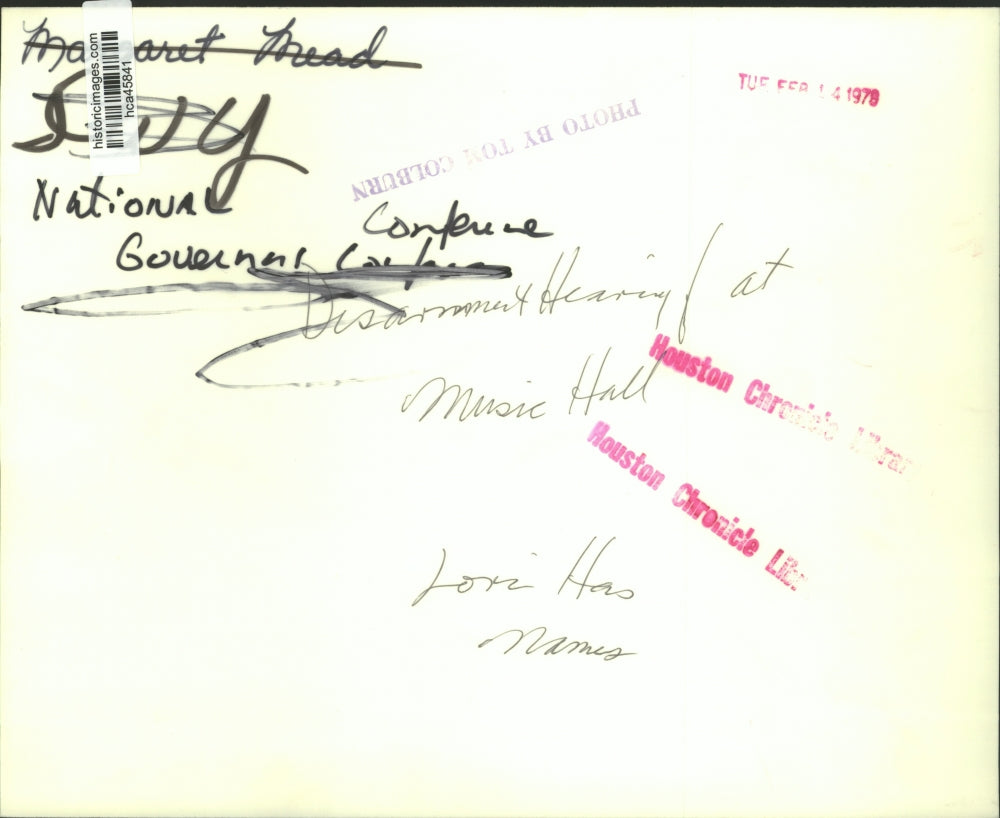 Margaret Mead
historicimages.com
hca45841
TUE FEB 14 1978
PHOTO BY TOM COLBURN
National
Conference
Governors
Disarmament Hearing at
Music Hall
Houston Chronicle Library
Houston Chronicle Lib
Lori Has
Names